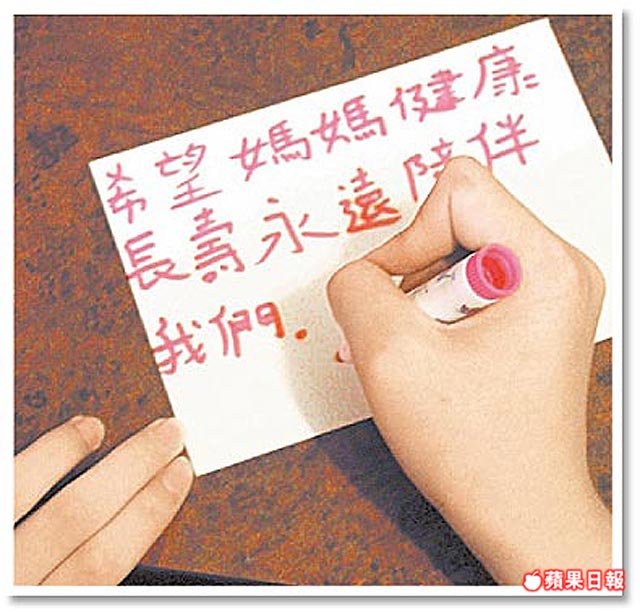 希望媽媽健康
長壽永遠陪伴
我們..
蘋果日報